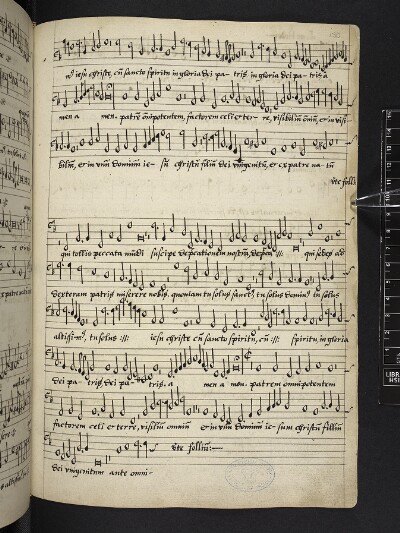 mꝰ iesu christe, cū sancto spiritu in gloria dei pa- tris in gloria dei pa- tris a
men a men. patrē omīpotentem, factorem celi et ter- re, visibiliū omīu, et in visi
biliū, et in vnū dominū ie- sū christū filiū dei vnigenitū, et ex patre na- tū
vte folliū
qui tollis peccata mūdi suscipe deprecationem nostrā, depcā :||: qui sedes ad
dexteram patris miserere nobis, quoniam tu solus sanctꝰ, tu solus dominꝰ tu solus
altissimꝰ, tu solus :||: iesu christe cū sancto spiritu, cū :||: spiritu, in gloria
dei pa- tris, dei pa- tris. a men a men. patrem omnipotentem
factorem celi et terre, visibiliū omniū et in vnū dominū ie- sum christū filiū
dei vnigenitum ante omni- vte folliū:-